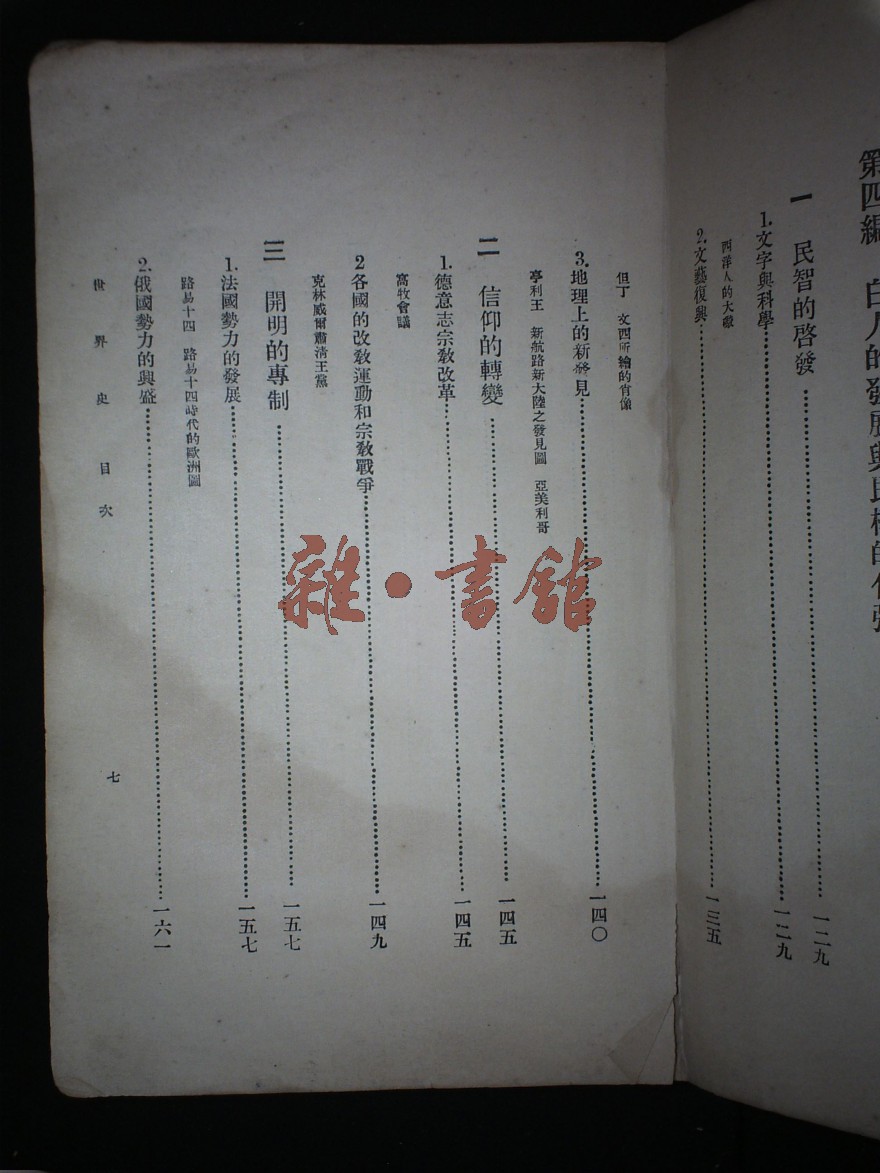 第四編 白人的發展與民權的伸張
一 民智的啓發……一二九
1.文字與科學……一二九
西洋人的大
2.文藝復興……一三五
但丁 文西所繪的肖像
3.地理上的新發見……一四〇
亨利王 新航路新大陸之發見圖 亞美利哥
二 信仰的轉變……一四五
1.德意志宗教改革……一四五
窩牧會議
2各國的改教運動和宗教戰爭……一四九
克林威爾肅清王黨
三 開明的專制……一五七
1.法國勢力的發展……一五七
路易十四 路易十四時代的歐洲圖
2.俄國勢力的興盛……一六一
世界史目次
七
雜·書館